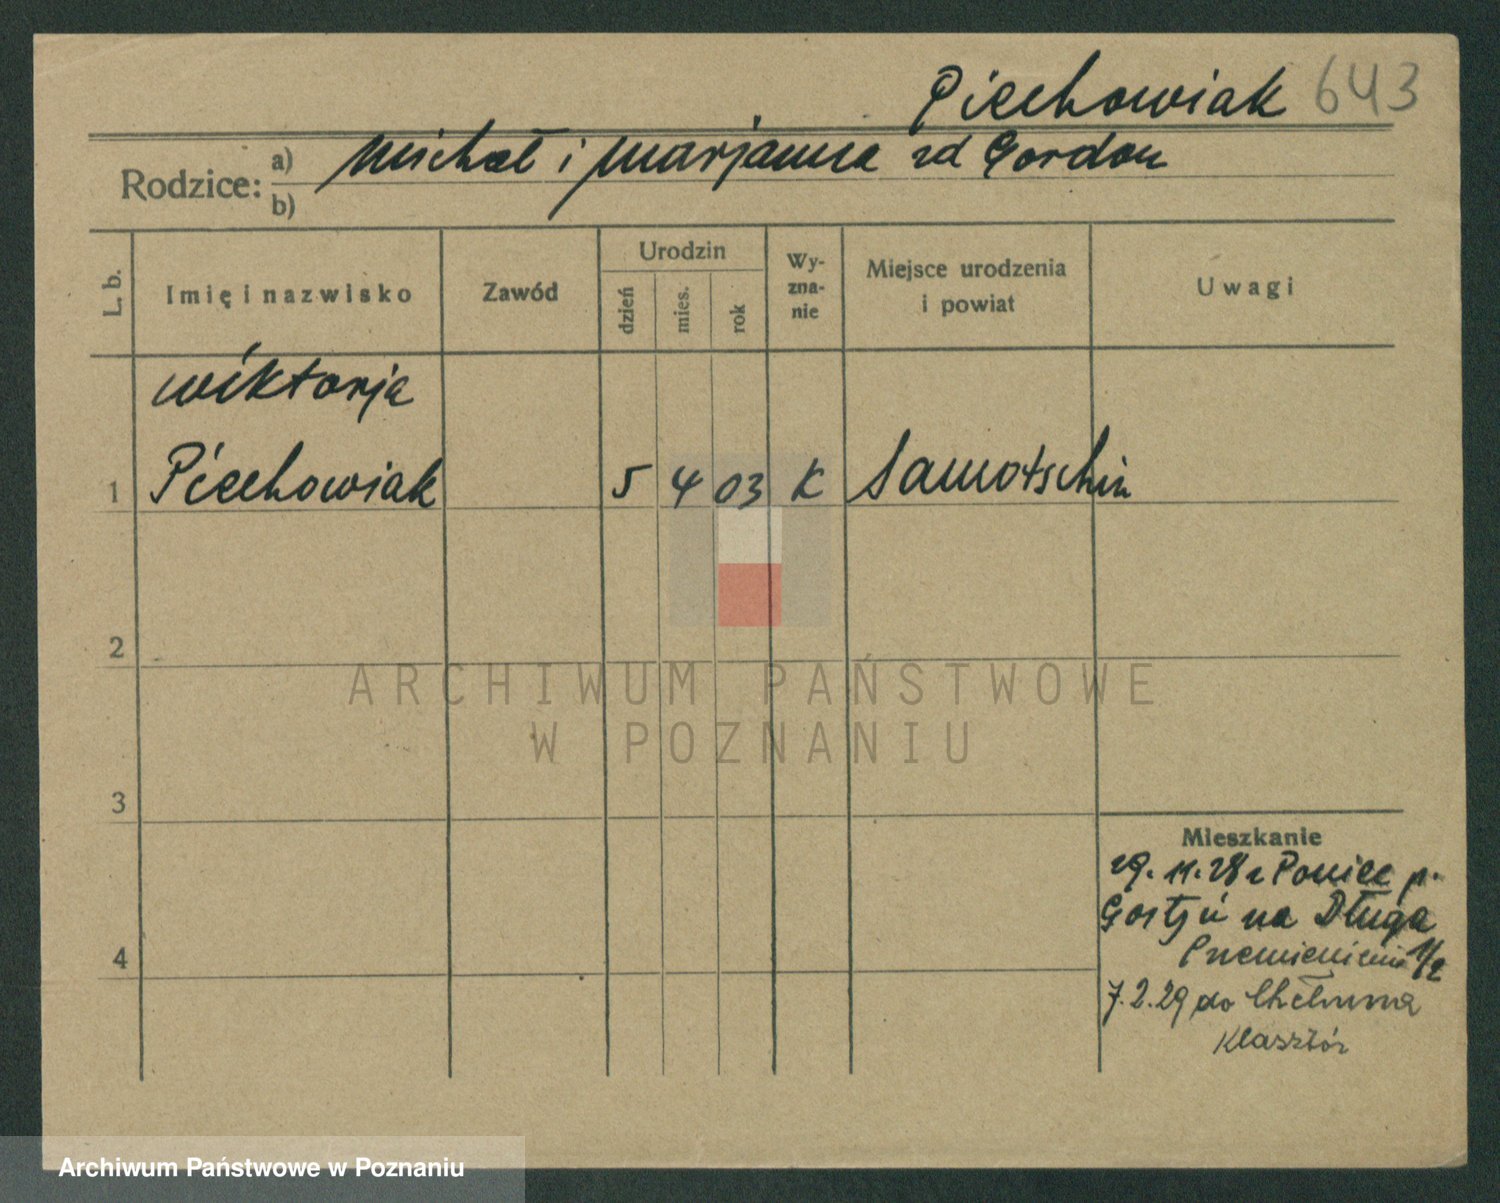 Piechowiak 643
Rodzice: a) Michał i Marjanna zd Gordon
b)
L. b.
Imię i nazwisko
Zawód
Urodzin
dzień
mies.
rok
Wy-
zna-
nie
Miejsce urodzenia
i powiat
Uwagi
Wiktorja
1 Piechowiak 5 4 03 K Samotschin
2
3
4
Mieszkanie
29.11.28 z Poniec p.
Gostyń na Długa
1/2
7.2.29 do Chełmna
Klasztór
ARCHIWUM PAŃSTWOWE
W POZNANIU
Archiwum Państwowe w Poznaniu